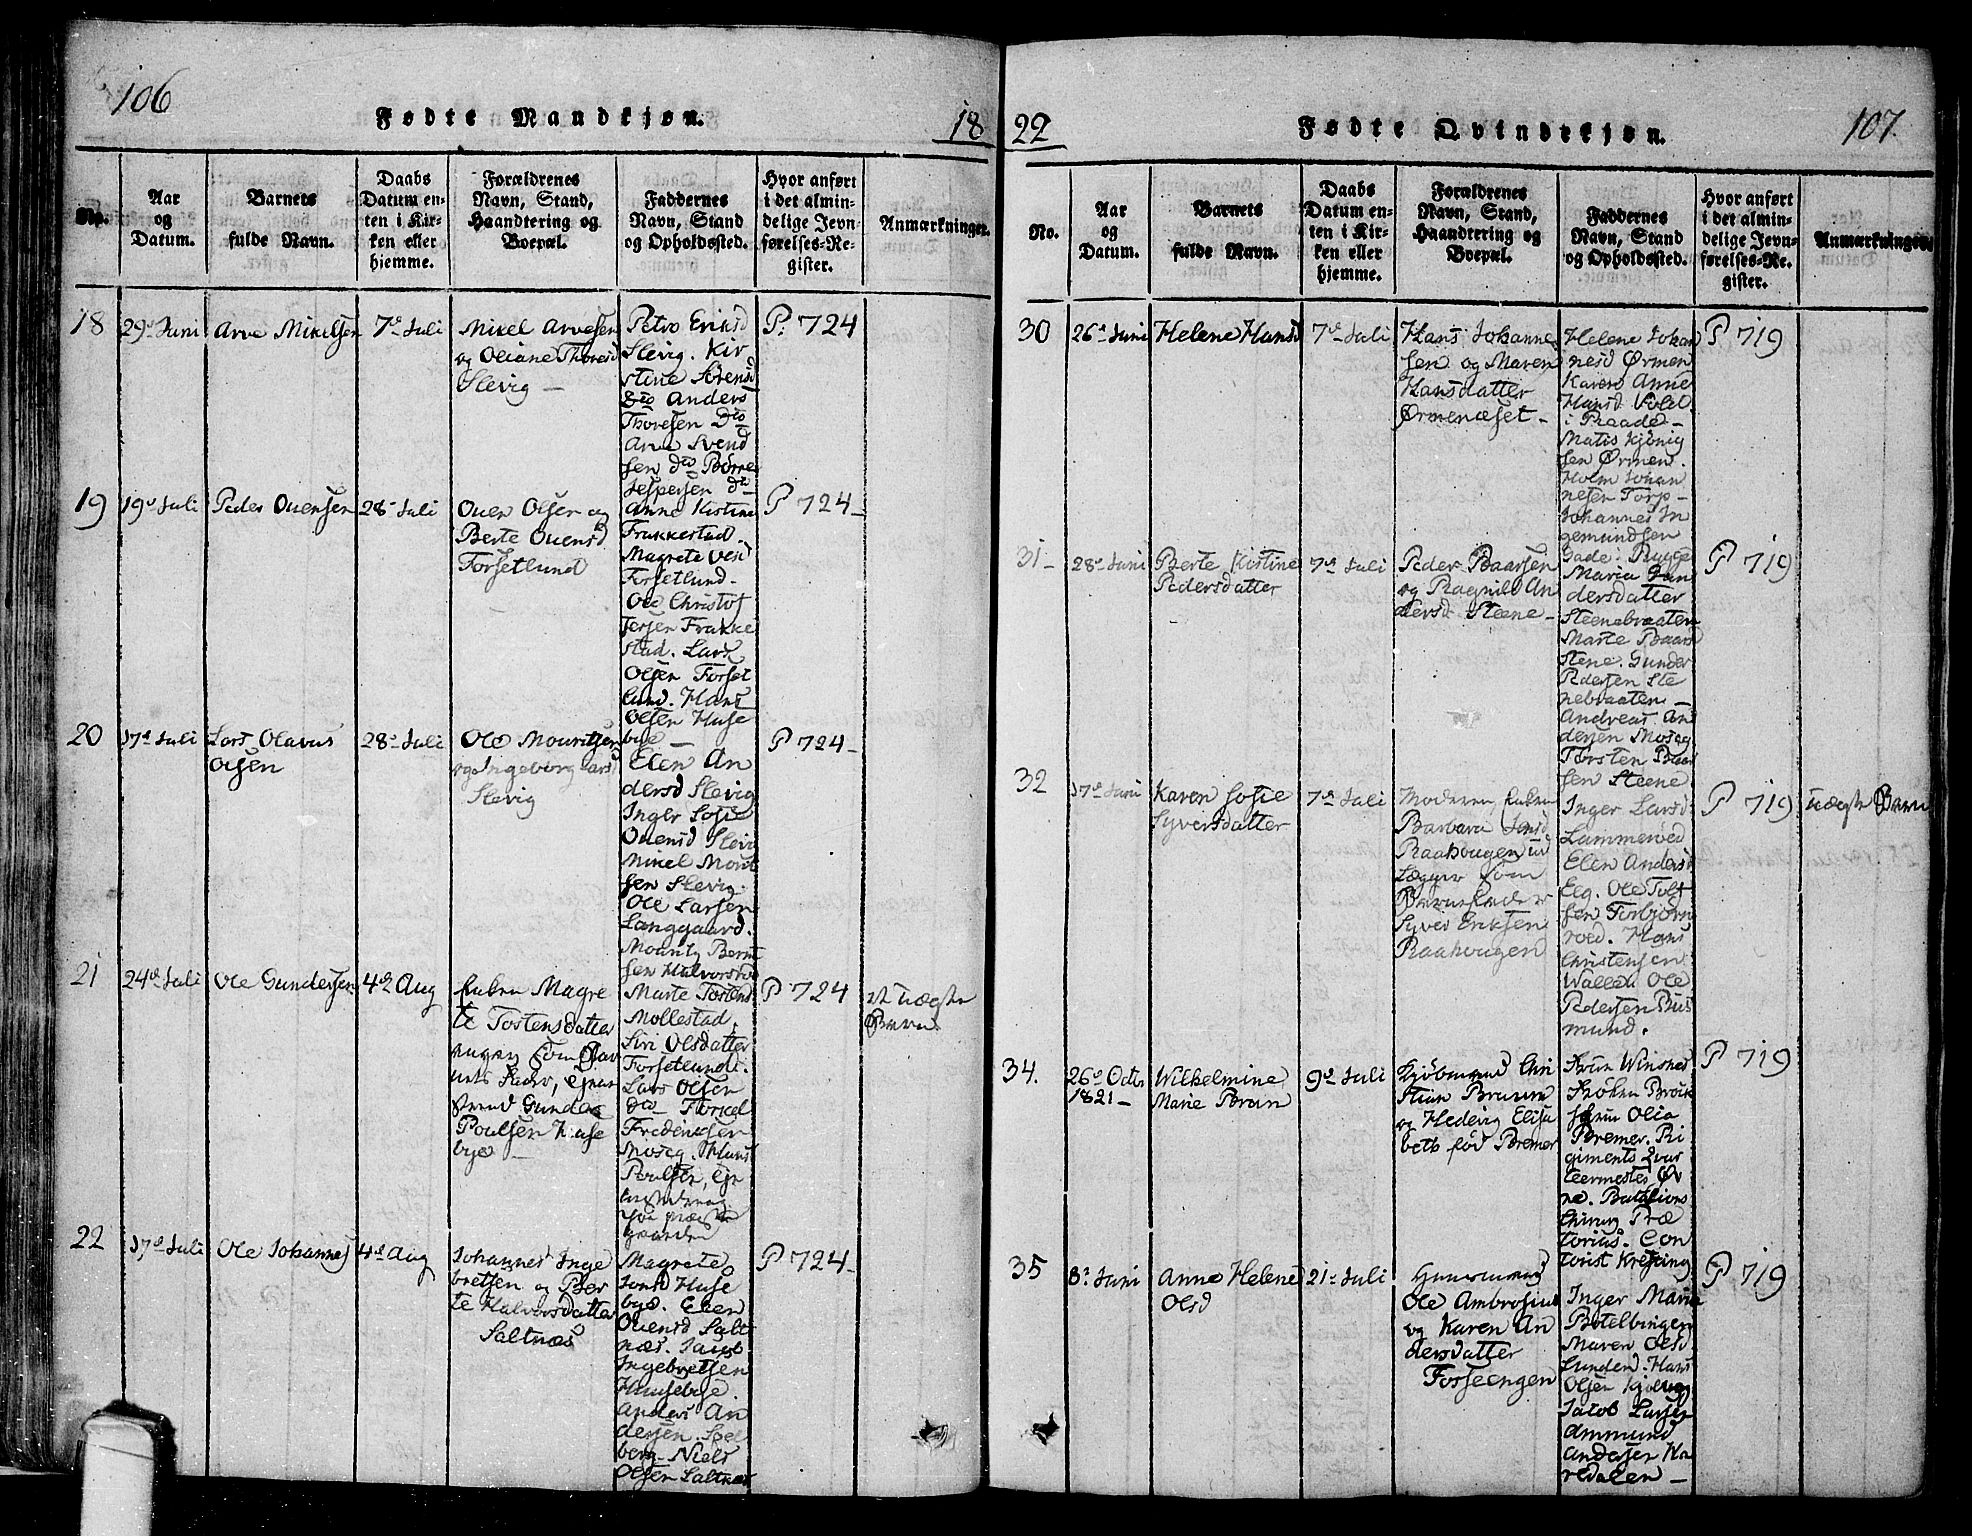 106
Fødte Mandkjøn.
18
No.
Aar
og
Datum.
Barnets
fulde Navn.
Daabs
Datum en-
ten i Kir-
ken eller
hjemme.
Forældrenes
Navn, Stand,
Haandtering og
Boepæl.
Faddernes
Navn, Stand
og Opholdssted.
Hvor anført
i det almin-
delige Jevn-
førelses-Re-
gister.
Anmærkninger.
18
29de Juni
Arve Mikelsen
7de Juli
Mikel Arvesen
og Oliane Thoresd
Slevig —
Petro Eriksd
Slevig. Kir
stine Sørensd
dto Anders
Thoresen Dto
Arve Svend
sen dto Børre
Jespersen dto
P. 724
19
19de Juli
Peder Ouensen
28de Juli
Ouen Olsen og
Berte Ouensd
Forsetlund
Anne Kistine
Frukkestad.
Magrete Olsd
Forsetlund.
Ole Christof
fersen Frukke
stad. Lars
Olsen Forset
lund. Hans
Olsen Huse
bye —
P 724
20
17de Juli
Lars Olavus
Olsen
28de Juli
Ole Mouritsen
og Ingeborg Larsd
Slevig
Elen An
dersd Slevig
Inger Sofie
Ouensd Slevig
Mikel Mourit
sen Slevig.
Ole Larsen
Langgaard.
Mouritz Bernt
sen Halvorsrød
P 724
21
24de Juli
Ole Gundersen
4de Aug
Enken Magre
te Tostensdatter
angav som Bar
nets Fader,
Gunder
Poulsen Huse
bye —
Marte Tostensd
Mollestad.
Siri Olsdatter
Forsetlund.
Lars Olsen
dto Torkel
Frederiksen
Moseg. Hans
Poulsen,
P 724
et uægte
Barn
22
17de Juli
Ole Johannes
4de Aug
Johannes Inge
bretsen og Ber
te Halvorsdatter
Saltnæs
Magrete
Jonsd Huse
bye. Elen
Ouensd Salt
næs. Jacob
Ingebretsen
Huusebye.
Anders An
dersen. Spel
berg. Niels
Olsen Saltnæs
P 724
22
Fødte Qvindekjøn.
107.
No.
Aar
og
Datum.
Barnets
fulde Navn.
Daabs
Datum en-
ten i Kir-
ken eller
hjemme.
Forældrenes
Navn, Stand,
Haandtering og
Boepæl.
Faddernes
Navn, Stand
og Opholdssted.
Hvor anført
i det almin-
delige Jevn-
førelses-Re-
gister.
Anmærkninger
30
26de Juni
Helene Hansd
7de Juli
Hans Johanne
sen og Maren
Hansdatter
Ørmenæset —
Helene Johan
nesd Ørmen
Karen Anne
Hansd
i Raade —
Matis Kjønig
sen Ørmen.
Holm Johan
nesen Torp —
Johannes In
gemundsen
Gade. Rygge
P 719
31
28de Juni
Berte Kistine
Pedersdatter
7de Juli
Peder Baarsen
og Ragnild An
dersd Steene —
Maria Gun
dersdatter
Steenebraaten
Marte Baars
Stene. Gunder
Pedersen Ste
nebraaten —
Andreas An
dersen Moseg
Torsten Baar
sen Steene
P 719
32
17de Juni
Karen Sofie
Syversdatter
7de Juli
Moderen, Enken
Barbara Jensd
Raahougen ud
lægger som
Barnefader
Syver Eriksen
Raahougen
Inger Larsd
Lammerød
Elen Andersd
Elg. Ole Tolf
sen Torbjørn
rød. Hans
Christensen
Walle. Ole
Pedersen Rus
mund.
P 719
uægte Barn
34.
26de Octbr
1821 —
Wilhelmine
Marie Brun
9de Juli
Kjøbmand Chri
stian Bruun
og Hedevig Elisa
beth fød Bremer
Frue Winsnes
Frøken Brock
Frue Olia
Bremer. Ri
giments Qvar
teermester Øv
ne. Batalions
Chirurg Præ
torius. Con
torist Kresting
P 719
35
8de Juni
Anne Helene
Olsd
21de Juli
Huusmand
Ole Ambrosius
og Karen An
dersdatter
Forseengen
Inger Maria
Botelbingen
Maren Olsd
Lunden. Hans
Olsen Kjølvig
Jakob Larsen
Ammund
Andersen Ka
redalen —
P 719